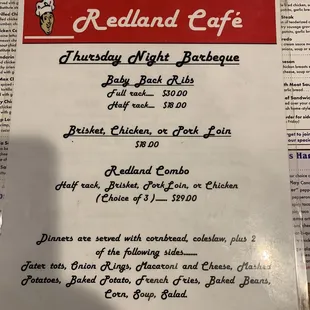 Redland Café
Thursday Night Barbeque
Baby Back Ribs
Full rack..... $30.00
Half rack..... $18.00
Brisket, Chicken, or Pork Loin
$18.00
Redland Combo
Half rack, Brisket, Pork Loin, or Chicken
(Choice of 3)...... $29.00
Dinners are served with cornbread, coleslaw, plus 2
of the following sides.......
Tater tots, Onion Rings, Macaroni and Cheese, Mashed
Potatoes, Baked Potato, French Fries, Baked Beans,
Corn, Soup, Salad.